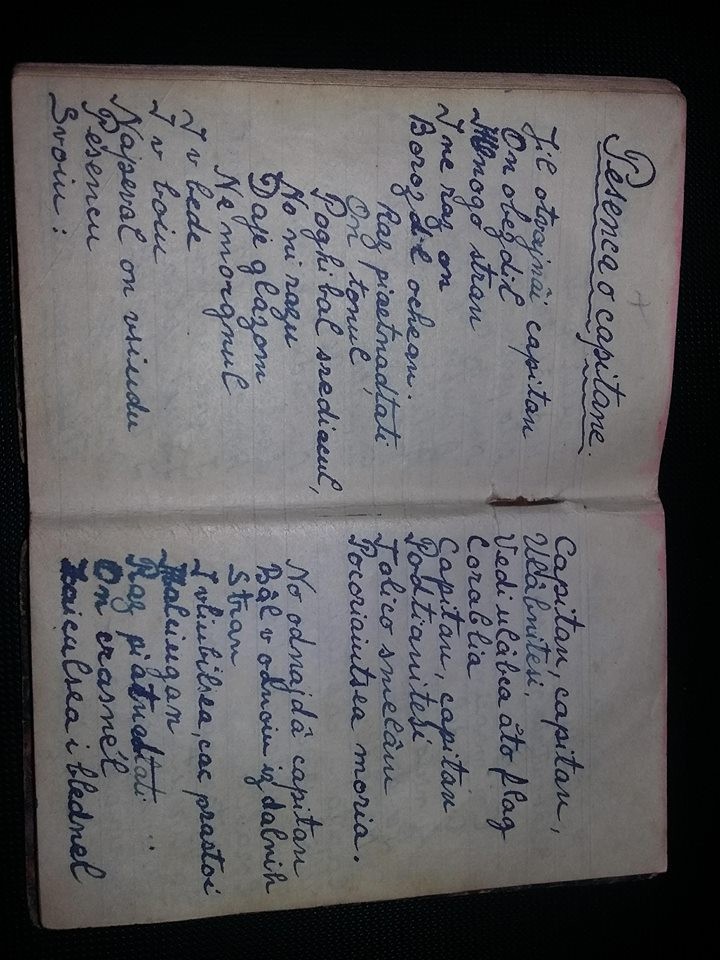 Pesenca o capitane.
Jil otvajnâi capitan
On obezdil
Mnogo stran
I ne raz on
Borozdil ochean.
Raz piatnadtati
On tonul
Poghibal srediacul,
No ni razu
Daje glazom
Ne morgnul
I v bede
I v boiu
Napeval on vsiudu
Pesencu
Svoiu:
Capitan, capitan,
Ulâbnitesi,
Vedi ulâbca ăto flag
Corablia
Capitan, capitan
Podtianitesi
Tolico smelâm
Pocoriaiutsea moria.
No odnajdâ capitan
Bâl v odnoiu iz dalnih
Stran
I vliubilsea, cac prastoi
Malciugan
Raz piatnadtati
On crasnel
Zaiculsea i blednel